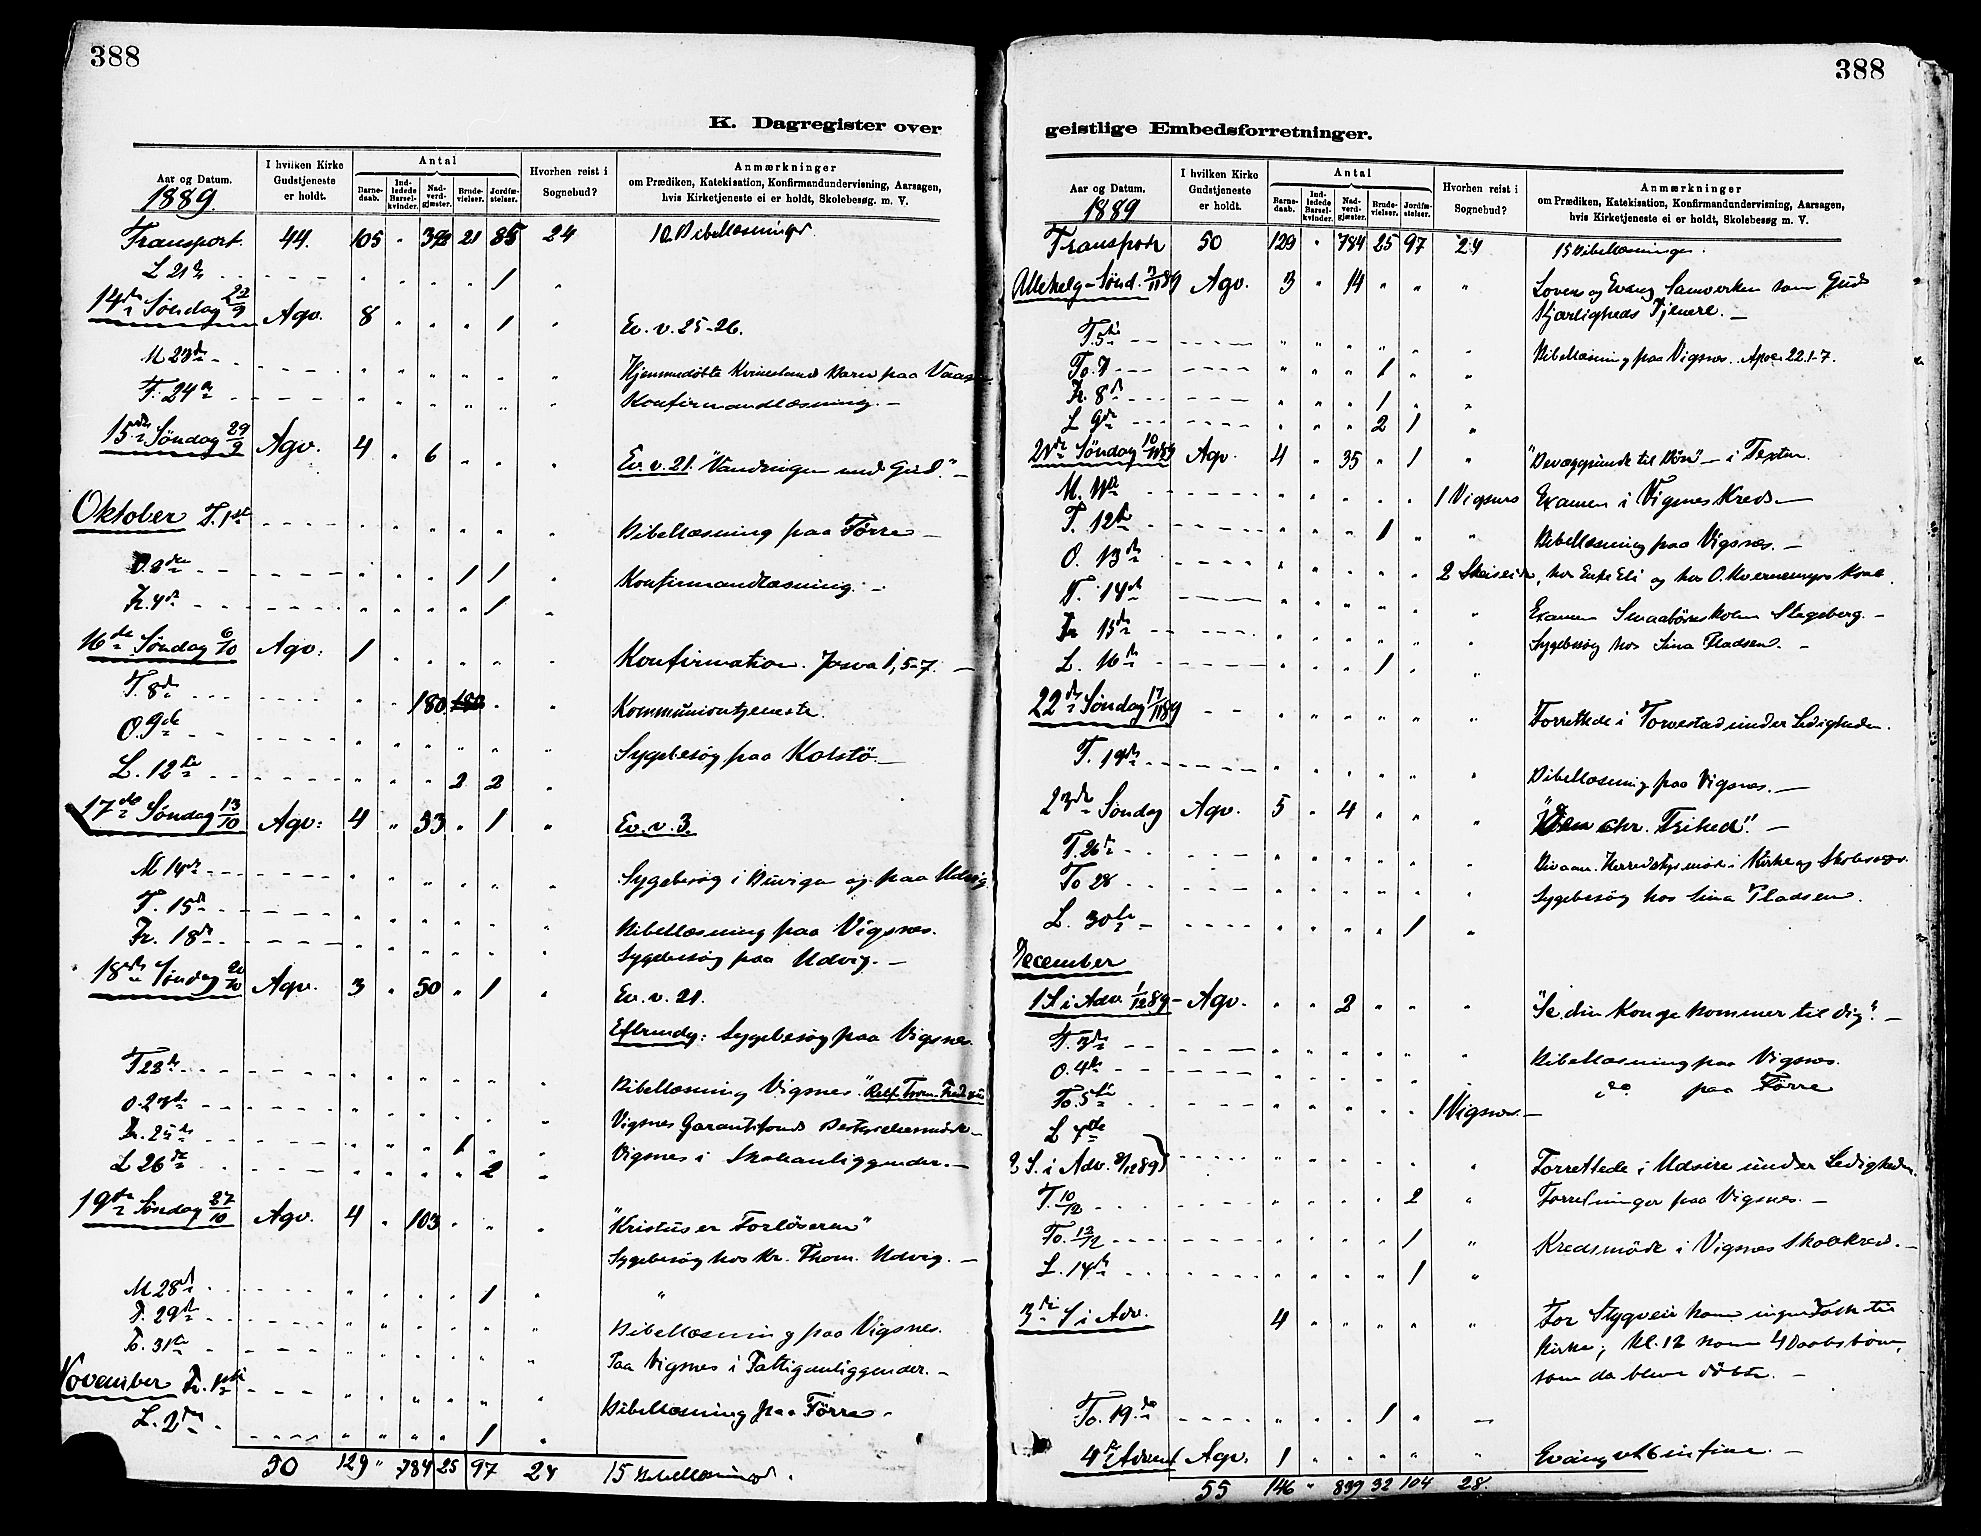 388
K. Dagregister over
Aar og Datum. I hvilken Kirke Gudstjeneste er holdt. Antal Barnedaab. Indledede Barselkvinder. Nadverdgjæster. Brudevielser. Jordfæstelser. Hvorhen reist i Sognebud? Anmærkninger om Prædiken, Katekisation, Konfirmandundervisning, Aarsagen, hvis Kirketjeneste ei er holdt, Skolebesøg. m. V.
1889.
Transport. 44. 105 " 392 21 85 24 10 Bibellæsninger
L 21de " " " " 1 "
14de Søndag 22/9 Agv. 8 " " " 1 " Ev. v. 25-26.
M 23de " " " " " " Hjemmedøbte Barn paa
T. 24de " " " " " " Konfirmandlæsning. —
15de Søndag 29/9 Agv. 4 " 6 " " " Ev. v. 21. "Vandringen med Gud". —
Oktober T. 1ste " " " " " " Bibellæsning paa Førre —
O. 2den " " " 1 1 " Konfirmandlæsning. —
Fr. 4de " " " " 1 "
16de Søndag 6/10 Agv. 1 " " " " " Konfirmation. Josva 1, 5-7. —
T. 8de " " 180 " " Kommuniontjeneste.
O. 9de " " " " " " Sygebesøg paa Kolstø —
L. 12te " " " 2 2 "
17de Søndag 13/10 Agv. 4 " 33 " 1 " Ev. v. 3.
M 14de " " " " " " Sygebesøg i og paa Udvig
T. 15de " " " " " " Bibellæsning paa Vigsnes.
Fr. 18de " " " " " " Sygebesøg paa Udvig. —
18de Søndag 20/10 Agv. 3 " 50 " 1 " Ev. v. 21.
Eftrmdg: Sygebesøg paa Vigsnes.
T 22de " " " " " " Bibellæsning Vigsnes.
O. 23de " " " " " " Vigsnes Garantifonds Bestyrelsesmøde —
Fr. 25de " " " 1 " " Vigsnes i Skoleanliggender. —
L 26de " " " " 2 "
19de Søndag 27/10 Agv. 4 " 103 " " " "Kristus er Forløseren"
Sygebesøg hos Kr. Thom. Udvig. —
M 28de " " " " 1 " "
T. 29de " " " " " " Bibellæsning paa Vigsnes.
To. 31te " " " " " " Paa Vigsnes i Fattiganliggender. —
November Fr. 1ste " " " " " " Bibellæsning paa Førre —
L. 2den " " " " 1 "
50 129 " 784 25 97 24 15 Bibellæsninger.
388
geistlige Embedsforretninger.
Aar og Datum. I hvilken Kirke Gudstjeneste er holdt. Antal Barnedaab. Indledede Barselkvinder. Nadverdgjæster. Brudevielser. Jordfæstelser. Hvorhen reist i Sognebud? Anmærkninger om Prædiken, Katekisation, Konfirmandundervisning, Aarsagen, hvis Kirketjeneste ei er holdt, Skolebesøg m. V.
1889
Transport 50 129 " 784 25 97 24 15 Bibellæsninger.
Allehelg-Sønd. 3/11 89 Agv. 3 " 14 " " " Loven og Evang Samvirken som Guds
Kjærligheds Tjenere. —
T. 5te " " " " " " Bibellæsning paa Vigsnes. Apoc. 22.1-7.
To. 7 " " " 1 " "
Fr. 8de " " " 1 " "
L 9de " " " 2 1 "
21de Søndag 10/11 89 Agv. 4 " 35 " 1 " "Bevæggrunde til Bøn" — i Texten.
M. 11te " " " " " 1 Vigsnes Examen i Vigsnes Kreds. —
T. 12te " " " 1 " " Bibellæsning paa Vigsnes. —
O. 13de " " " " " 2 Skeiseid, hos Enke Eli og hos O. Kvernemyrs Kone.
T. 14de " " " " " " Examen Smaabørnskolen Stageberg. —
Fr 15de " " " " " " Sygebesøg hos Sina Pladsen. —
L. 16de " " " 1 " "
22de Søndag 17/11 89 " " " " " " Forrettede i Torvestad under Ledigheden.
T. 19de " " " " " " Bibellæsning paa Vigsnes. —
23de Søndag Agv. 5 " 4 " " " "Den chr. Frihed". —
T. 26de " " " " " " Herredsstyremøde i Kirke og Skolesager.
To 28 " " " " " " Sygebesøg hos Sina Pladsen.
L. 30te " " " " 1 "
December
1 S i Adv. 1/12 89 Agv. " " 2 " " " "Se din Konge kommer til dig". —
T. 3de " " " " " " Bibellæsning paa Vigsnes.
O. 4de " " " " " " do paa Førre
To. 5te " " " " " 1 Vigsnes. —
L 7de
2 S. i Adv. 8/12 89 " " " " " " Forrettede i Udsire under Ledigheden.
T. 10/12 " " " " 2 " Forretninger paa Vigsnes. —
To. 12/12 " " " " 1 " Kredsmøde i Vigsnes Skolekreds. —
L. 14de " " " " 1 "
3die S i Adv. 4 " " " " " For Stygveir kom ingen Folk til
Kirke; Kl. 12 kom 4 Daabsbørn,
som da bleve døbte. —
To. 19de " " " 1 " —
4de i Advent Agv. 1 " " " " " Evang. v. 6 in fine. —
55 146 " 839 32 104 28.